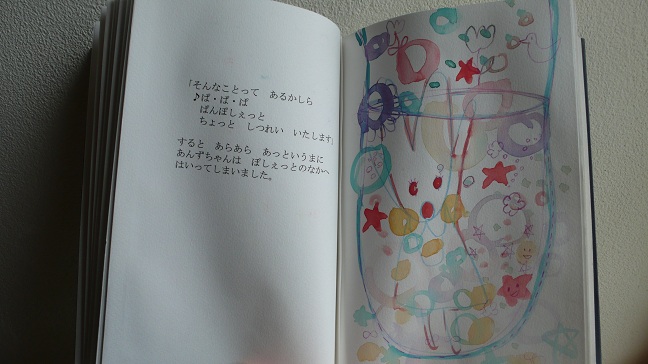 「そんなことって　あるかしら
♪ぱ・ぱ・ぱ
ぱんぽしぇっと
ちょっと　しつれい　いたします」
すると　あらあら　あっというまに
あんずちゃんは　ぽしぇっとのなかへ
はいってしまいました。